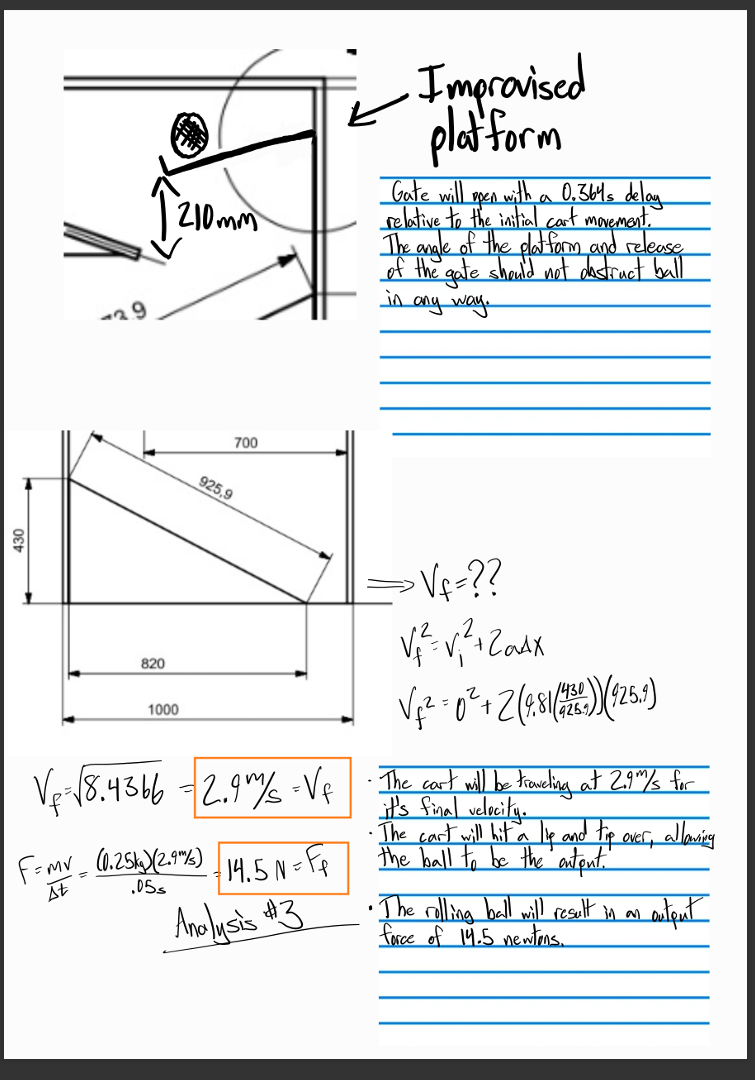 Improvised
platform
210mm
73.9
Gate will open with a 0.364s delay
relative to the initial cart movement.
The angle of the platform and release
of the gate should not obstruct ball
in any way.
700
925,9
430
820
1000
⟹ Vf=??
Vf²=Vi²+2aΔx
Vf²=0²+2(9.81(430/925.9))(925.9)
Vf=√8.4366 = 2.9m/s =Vf
F=mv/Δt = (0.25kg)(2.9m/s)/.05s = 14.5 N=Ff
Analysis #3
· The cart will be traveling at 2.9m/s for
it's final velocity.
· The cart will hit a lip and tip over, allowing
the ball to be the output.
· The rolling ball will result in an output
force of 14.5 newtons.